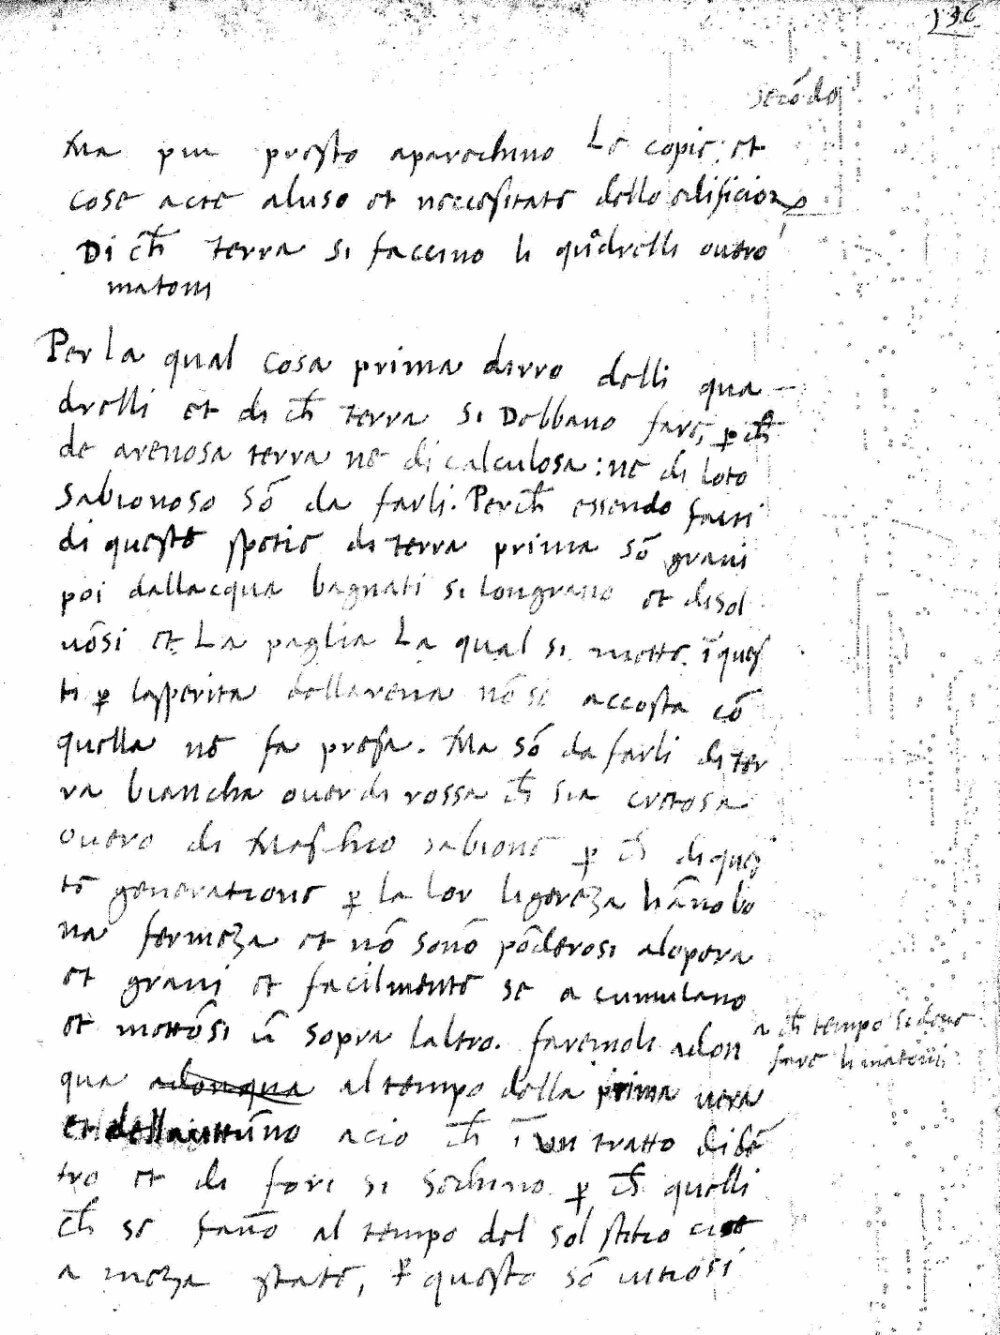 136
secõdo
Ma piu presto aparechino Le copie: et
cose acte aluso et neccessitate dello edificio
Di ch̃ terra si faccino li quadrelli overo
matoni
Per la qual cosa prima dirro delli qua
drelli et di ch̃ terra si Debbano fare, ꝑ ch̃
de arenosa terra ne di calculosa: ne di loto
sabionoso sõ da farli. Perch̃ essendo fatti
di queste spetie di terra prima sõ gravi
poi dallacqua bagnati si longrano et disol
võsi et La paglia La qual si mette ĩ ques
ti ꝑ lasperita dellarena nõ se accosta cõ
quella ne fa presa. Ma sõ da farli di ter
ra biancha over di rossa ch̃ sia cretosa
overo di Maschio sabione ꝑ ch̃ di ques
te generatione ꝑ la lor ligereza hãno bo
na fermeza et nõ sonõ põderosi alopera
et gravi et facilmente se acumulano
et mettõsi ũ sopra laltro. faremoli adon
a ch̃ tempo si deve
fare li matoni
qua adonqua al tempo della prima vera
et dellautũno acio ch̃ ĩ un tratto di dẽ
tro et di fori si sechino ꝑ ch̃ quelli
ch̃ se fano al tempo del sol stitio cioe
a meza state, ꝑ questo sõ vitiosi